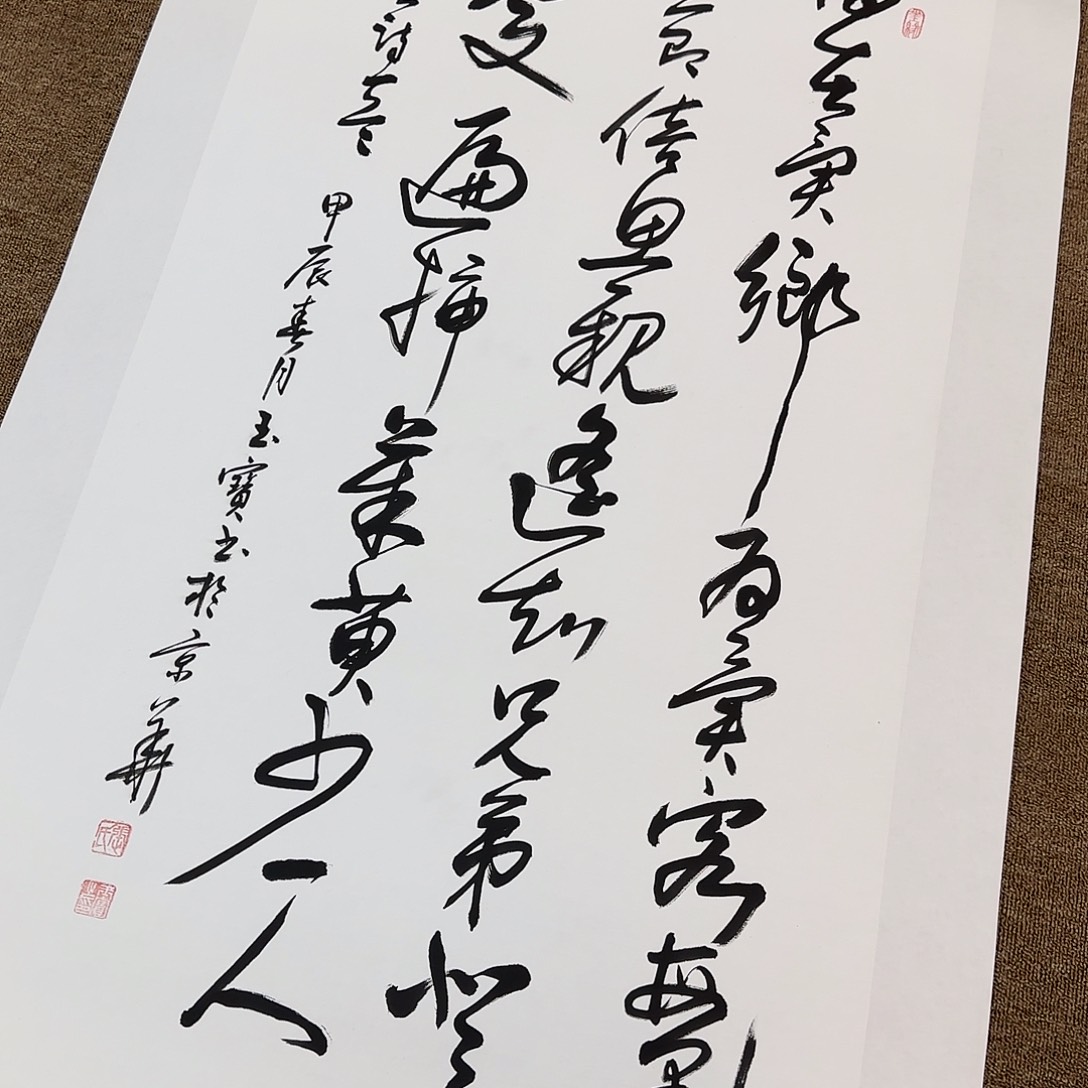 在異鄉為異客每
節倍思親遙知兄弟登
處遍插茱萸少一人
詩一首
甲辰春月玉寶書於京華